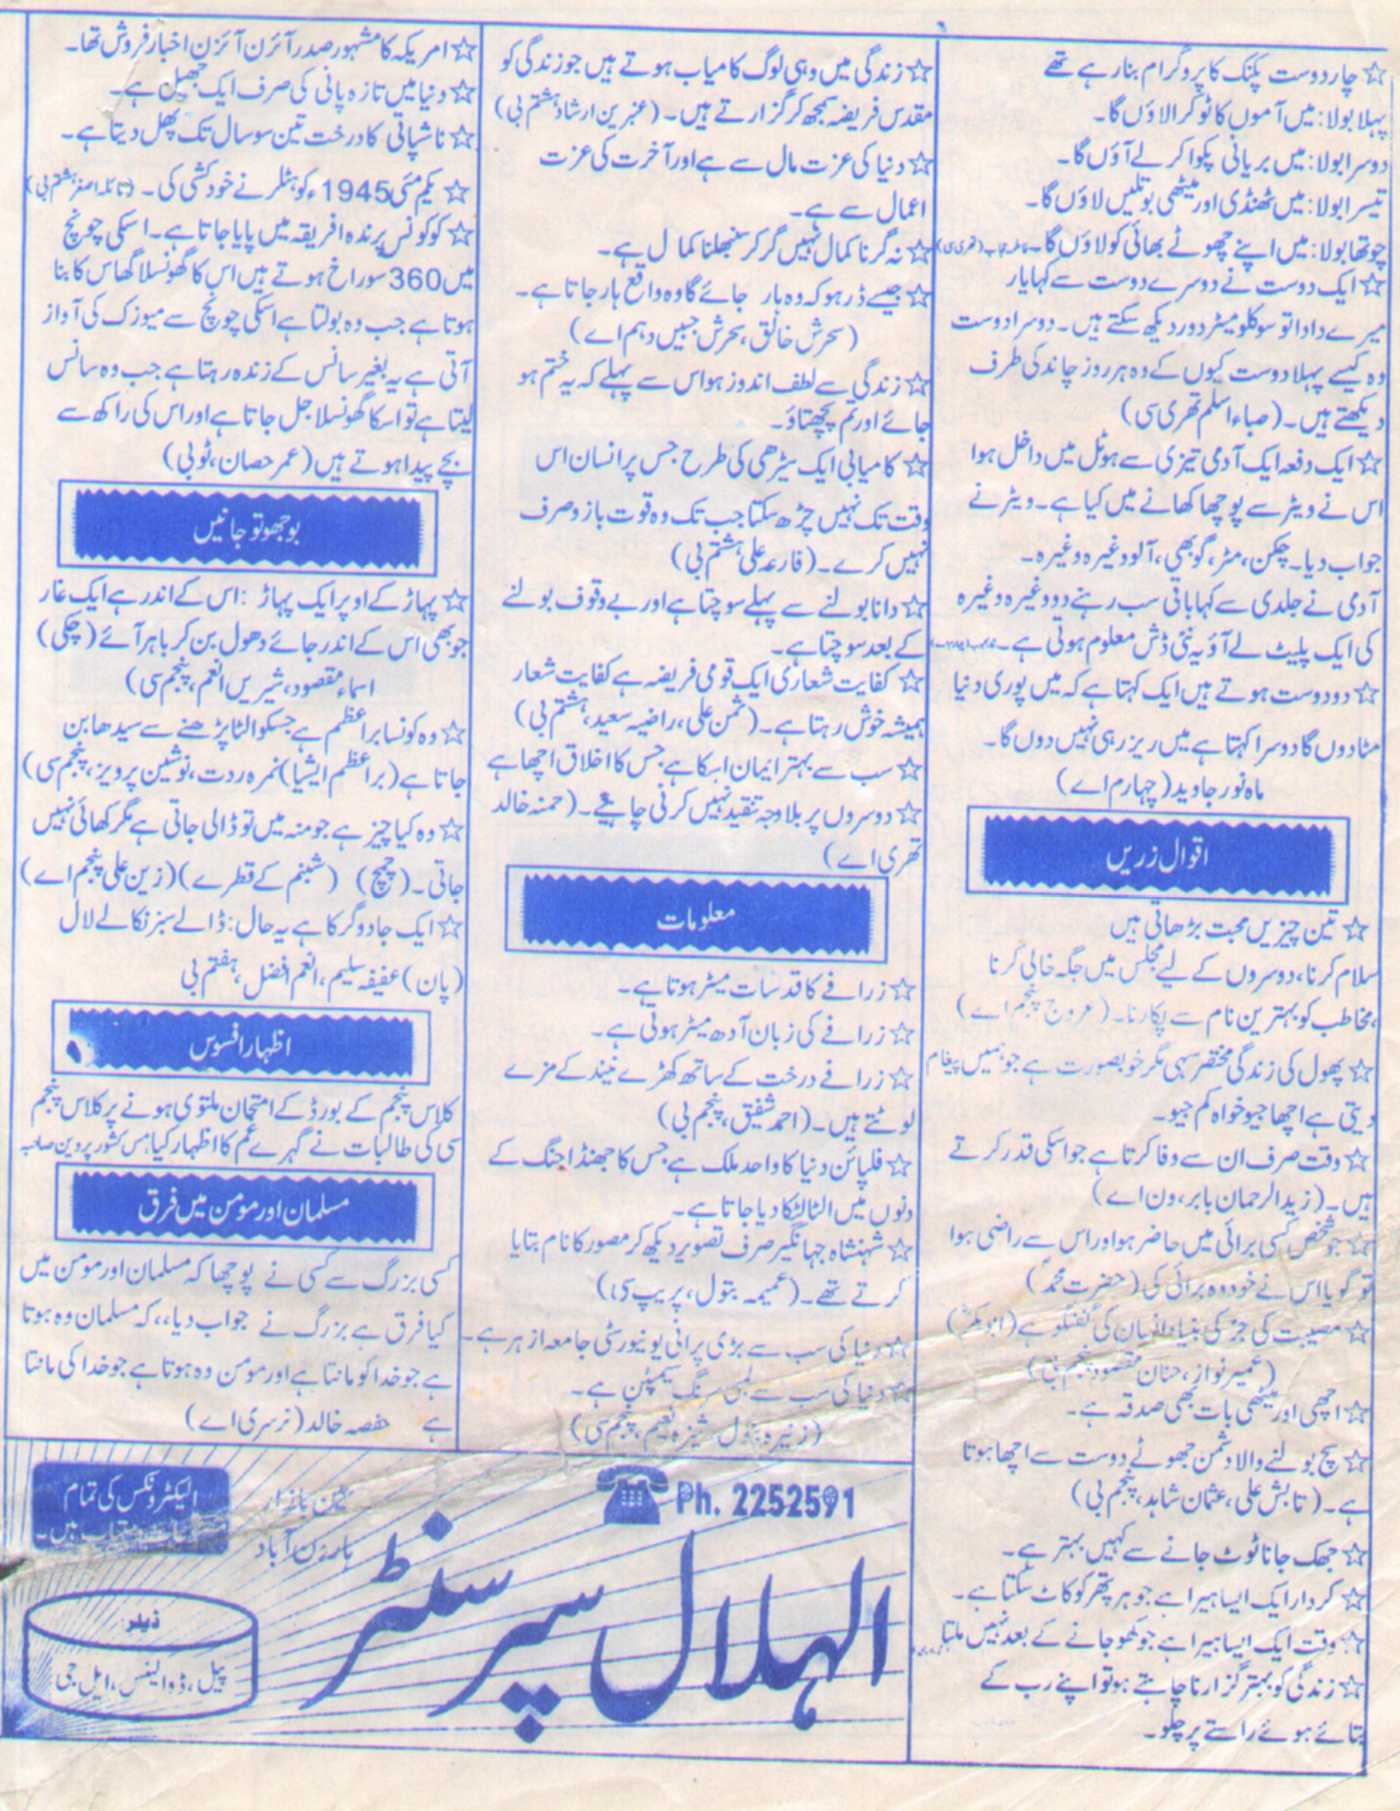 ☆ چار دوست پکنک کا پروگرام بنا رہے تھے
پہلا بولا: میں آموں کا ٹوکرا لاؤں گا۔
دوسرا بولا: میں بریانی پکوا کر لے آؤں گا۔
تیسرا بولا: میں ٹھنڈی اور میٹھی بوتلیں لاؤں گا۔
چوتھا بولا: میں اپنے چھوٹے بھائی کو لاؤں گا۔
☆ ایک دوست نے دوسرے دوست سے کہا یار
میرے دادا تو سو کلومیٹر دور دیکھ سکتے ہیں۔ دوسرا دوست
وہ کیسے پہلا دوست کیوں کے وہ ہر روز چاند کی طرف
دیکھتے ہیں۔ (صباء اسلم تھری سی)
☆ ایک دفعہ ایک آدمی تیزی سے ہوٹل میں داخل ہوا
اس نے ویٹر سے پوچھا کھانے میں کیا ہے۔ ویٹر نے
جواب دیا۔ چکن، مٹر، گوبھی، آلو وغیرہ وغیرہ۔
آدمی نے جلدی سے کہا باقی سب رہنے دو وغیرہ وغیرہ
کی ایک پلیٹ لے آؤ یہ نئی ڈش معلوم ہوتی ہے۔
☆ دو دوست ہوتے ہیں ایک کہتا ہے کہ میں پوری دنیا
مٹا دوں گا دوسرا کہتا ہے میں ریزر ہی نہیں دوں گا۔
ماہ نور جاوید (چہارم اے)
اقوال زریں
☆ تین چیزیں محبت بڑھاتی ہیں
سلام کرنا، دوسروں کے لیے مجلس میں جگہ خالی کرنا
،مخاطب کو بہترین نام سے پکارنا۔ (عروج پنجم اے)
☆ پھول کی زندگی مختصر سہی مگر خوبصورت ہے جو ہمیں پیغام
دیتی ہے اچھا جیو خواہ کم جیو۔
☆ وقت صرف ان سے وفا کرتا ہے جو اسکی قدر کرتے
ہیں۔ (زید الرحمان بابر، ون اے)
☆ جو شخص کسی برائی میں حاضر ہوا اور اس سے راضی ہوا
تو گویا اس نے خود وہ برائی کی (حضرت محمدؐ)
☆ مصیبت کی جڑ کی بنیاد انسان کی گفتگو ہے (ابوبکرؓ)
(عمیر نواز، حنان مقصود پنجم بی)
☆ اچھی اور میٹھی بات بھی صدقہ ہے۔
☆ سچ بولنے والا دشمن جھوٹے دوست سے اچھا ہوتا
ہے۔ (تابش علی، عثمان شاہد، پنجم بی)
☆ جھک جانا ٹوٹ جانے سے کہیں بہتر ہے۔
☆ کردار ایک ایسا ہیرا ہے جو ہر پتھر کو کاٹ سکتا ہے۔
☆ وقت ایک ایسا ہیرا ہے جو کھو جانے کے بعد نہیں ملتا
☆ زندگی کو بہتر گزارنا چاہتے ہو تو اپنے رب کے
بتائے ہوئے راستے پر چلو۔
☆ زندگی میں وہی لوگ کامیاب ہوتے ہیں جو زندگی کو
مقدس فریضہ سمجھ کر گزارتے ہیں۔ (عنبرین ارشاد ہشتم بی)
☆ دنیا کی عزت مال سے ہے اور آخرت کی عزت
اعمال سے ہے۔
☆ نہ گرنا کمال نہیں گر کر سنبھلنا کمال ہے۔
☆ جسے ڈر ہو کہ وہ ہار جائے گا وہ واقع ہار جاتا ہے۔
(سحرش خالق، سحرش جبیں دہم اے)
☆ زندگی سے لطف اندوز ہو اس سے پہلے کہ یہ ختم ہو
جائے اور تم پچھتاؤ۔
☆ کامیابی ایک سیڑھی کی طرح جس پر انسان اس
وقت تک نہیں چڑھ سکتا جب تک وہ قوت بازو صرف
نہیں کرے۔ (فارعہ علی ہشتم بی)
☆ دانا بولنے سے پہلے سوچتا ہے اور بے وقوف بولنے
کے بعد سوچتا ہے۔
☆ کفایت شعاری ایک قومی فریضہ ہے کفایت شعار
ہمیشہ خوش رہتا ہے۔ (ثمن علی، راضیہ سعید، ہشتم بی)
☆ سب سے بہتر ایمان اسکا ہے جس کا اخلاق اچھا ہے
☆ دوسروں پر بلاوجہ تنقید نہیں کرنی چاہیے۔ (حمنہ خالد
تھری اے)
معلومات
☆ زرافے کا قد سات میٹر ہوتا ہے۔
☆ زرافے کی زبان آدھ میٹر ہوتی ہے۔
☆ زرافے درخت کے ساتھ کھڑے نیند کے مزے
لوٹتے ہیں۔ (احمد شفیق، پنجم بی)
☆ فلپائن دنیا کا واحد ملک ہے جس کا جھنڈا جنگ کے
دنوں میں الٹا لٹکا دیا جاتا ہے۔
☆ شہنشاہ جہانگیر صرف تصویر دیکھ کر مصور کا نام بتایا
کرتے تھے۔ (عمیمہ بتول، پریپ سی)
☆ دنیا کی سب سے بڑی پرانی یونیورسٹی جامعہ ازہر ہے۔
☆ دنیا کی سب سے لمبی سرنگ سمپٹن ہے۔
(زنیرہ بتول، شیزہ نعیم، پنجم سی)
☆ امریکہ کا مشہور صدر آئزن آئزن اخبار فروش تھا۔
☆ دنیا میں تازہ پانی کی صرف ایک جھیل ہے۔
☆ ناشپاتی کا درخت تین سو سال تک پھل دیتا ہے۔
☆ یکم مئی 1945ء کو ہٹلر نے خودکشی کی۔ (نائلہ اصغر ہشتم بی)
☆ کوکونس پرندہ افریقہ میں پایا جاتا ہے۔ اسکی چونچ
میں 360 سوراخ ہوتے ہیں اس کا گھونسلا گھاس کا بنا
ہوتا ہے جب وہ بولتا ہے اسکی چونچ سے میوزک کی آواز
آتی ہے یہ بغیر سانس کے زندہ رہتا ہے جب وہ سانس
لیتا ہے تو اسکا گھونسلا جل جاتا ہے اور اس کی راکھ سے
بچے پیدا ہوتے ہیں (عمر حصان، ٹو بی)
بوجھو تو جانیں
☆ پہاڑ کے اوپر ایک پہاڑ : اس کے اندر ہے ایک غار
جو بھی اس کے اندر جائے دھول بن کر باہر آئے (چکی)
اسماء مقصود، شیریں انعم، پنجم سی)
☆ وہ کونسا براعظم ہے جسکو الٹا پڑھنے سے سیدھا بن
جاتا ہے (براعظم ایشیا) نمرہ ردت، نوشین پرویز، پنجم سی)
☆ وہ کیا چیز ہے جو منہ میں تو ڈالی جاتی ہے مگر کھائی نہیں
جاتی۔ (چمچ) (شبنم کے قطرے) (زین علی پنجم اے)
☆ ایک جادوگر کا ہے یہ حال: ڈالے سبز نکالے لال
(پان) عفیفہ سلیم، انعم افضل، ہفتم بی
اظہار افسوس
کلاس پنجم کے بورڈ کے امتحان ملتوی ہونے پر کلاس پنجم
سی کی طالبات نے گہرے غم کا اظہار کیا مس کشور پروین صاحبہ
مسلمان اور مومن میں فرق
کسی بزرگ سے کسی نے پوچھا کہ مسلمان اور مومن میں
کیا فرق ہے بزرگ نے جواب دیا،، کہ مسلمان وہ ہوتا
ہے جو خدا کو مانتا ہے اور مومن وہ ہوتا ہے جو خدا کی مانتا
ہے حفصہ خالد (نرسری اے)
Ph. 2252591
الہلال سپر سنٹر
مین بازار
ہارون آباد
الیکٹرونکس کی تمام
ڈیلر
پیل، ڈولینس، ایل جی